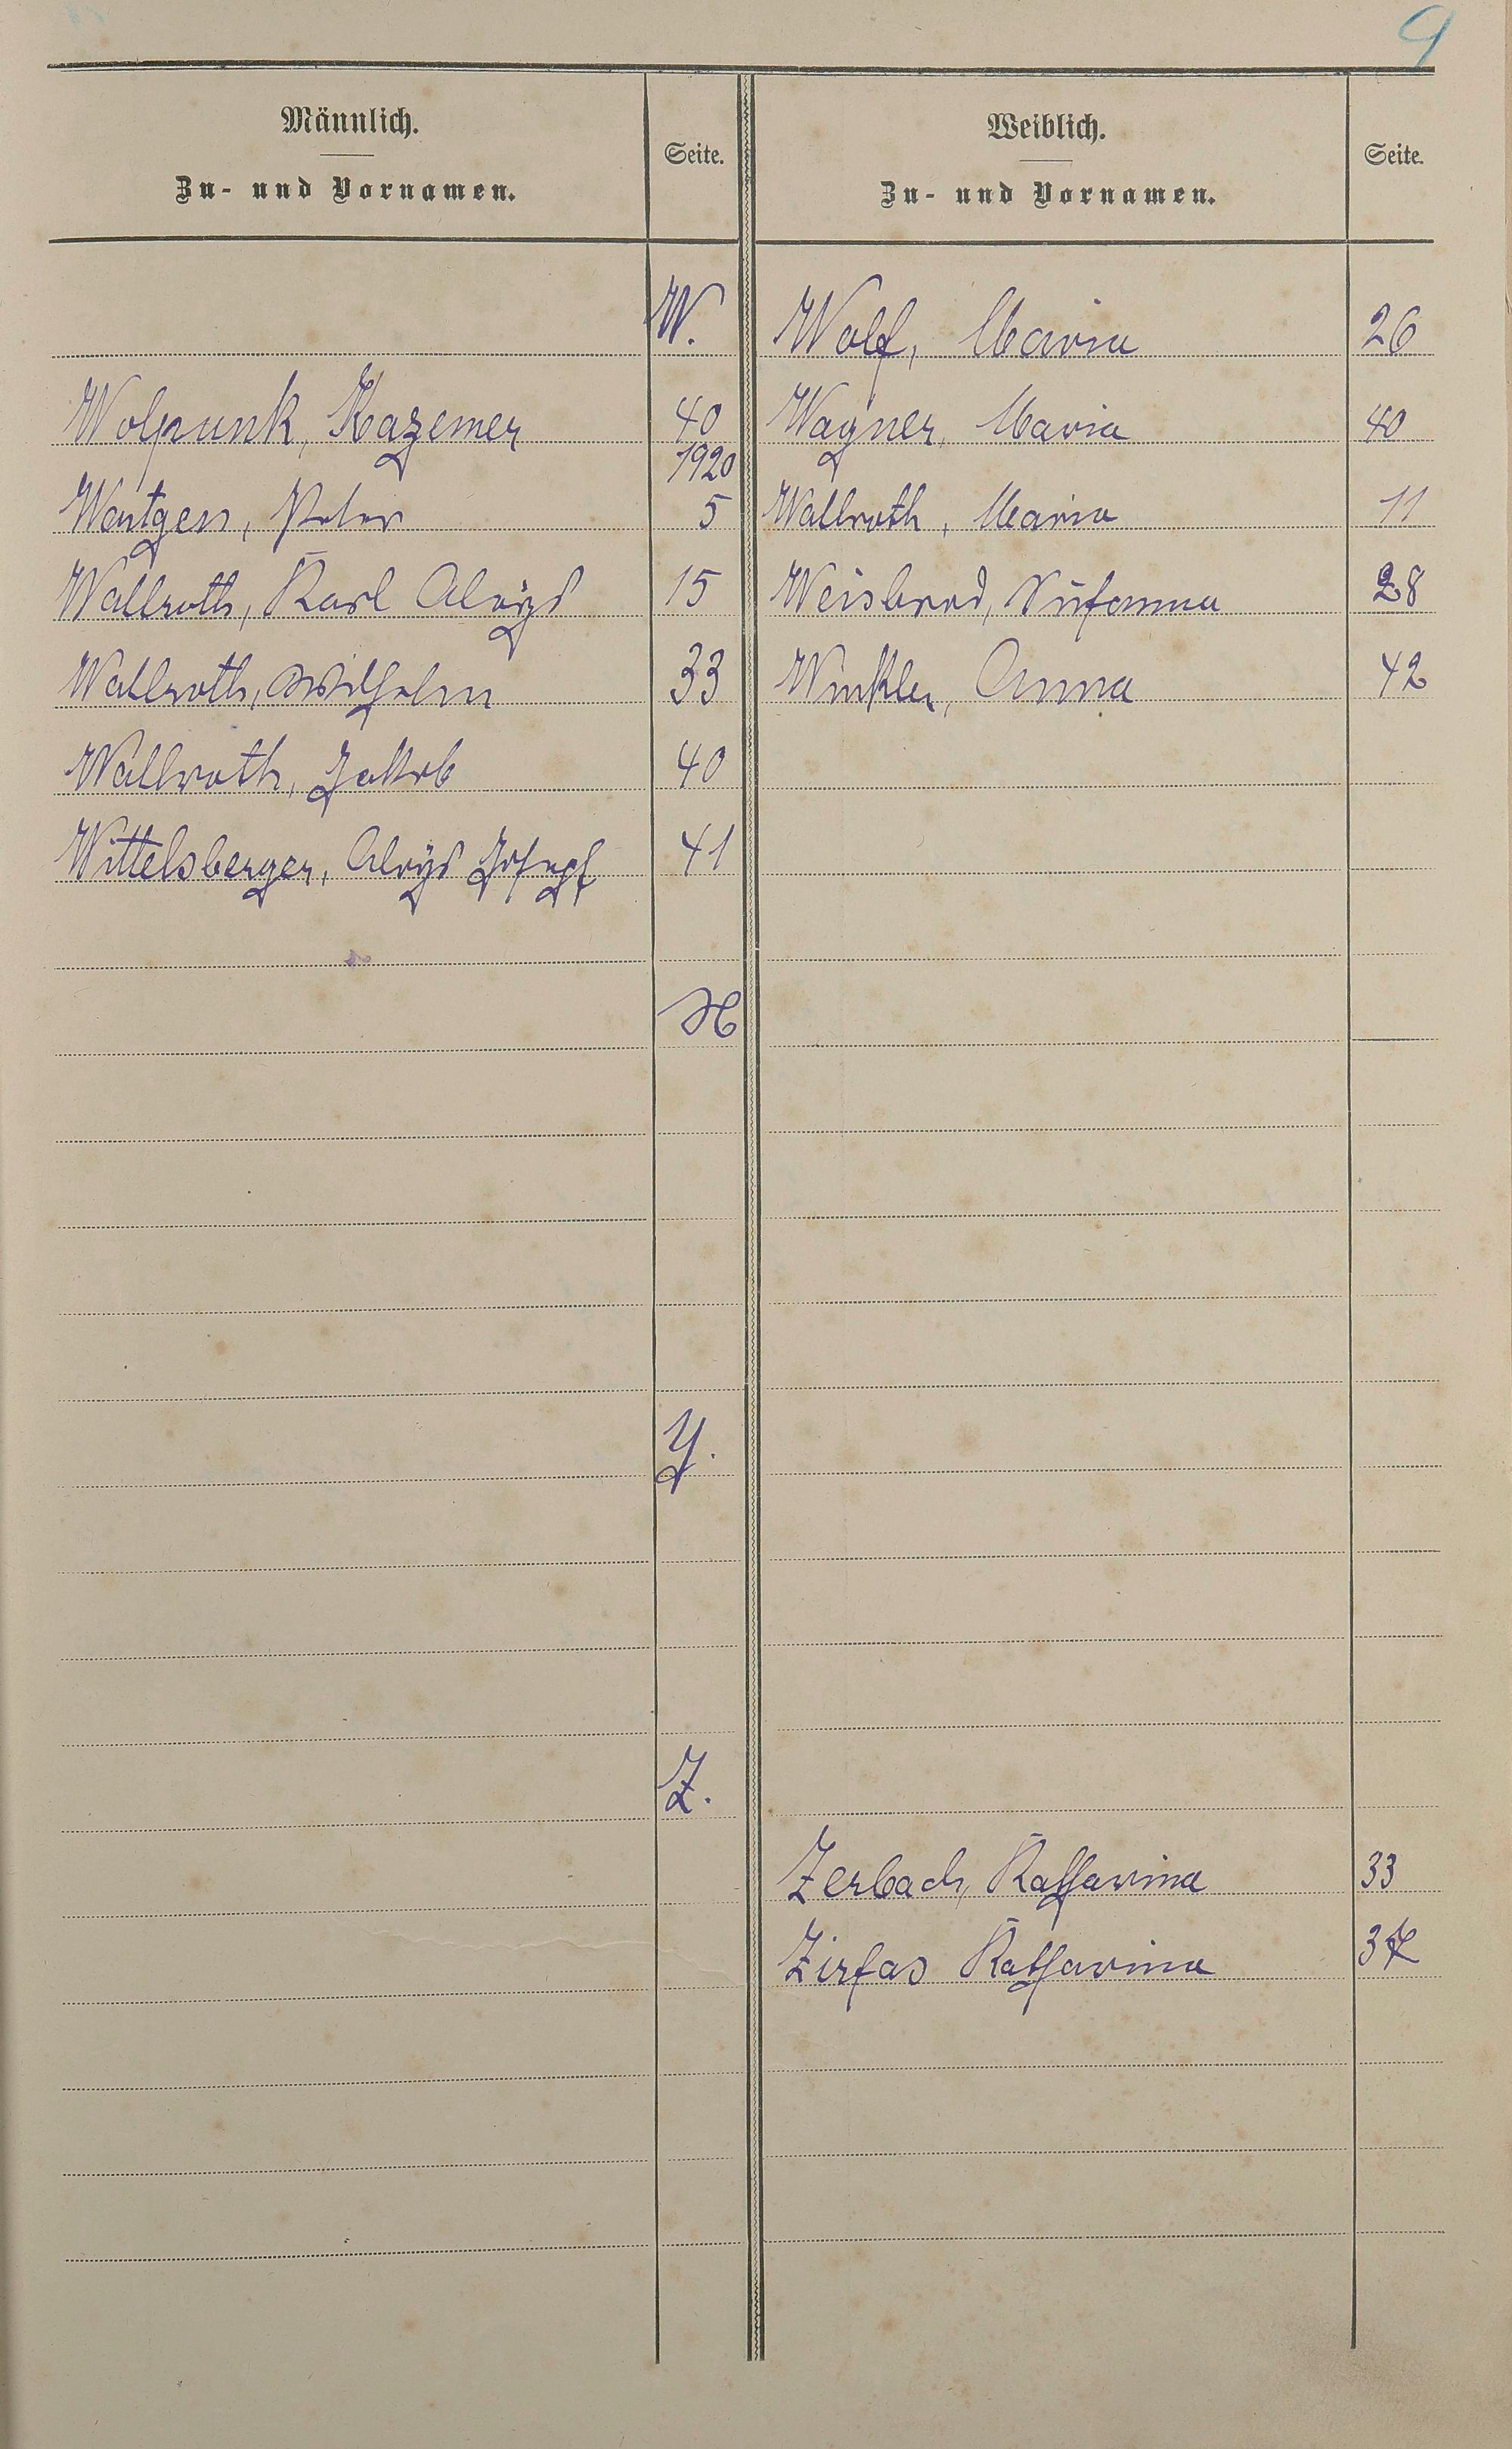 9
Männlich.
Zu- und Vornamen.
Seite.
Weiblich.
Zu- und Vornamen.
Seite.
W.
Wolf, Maria 26
Wolpunk, Kazemer 40
Wagner, Maria 40
1920
Wantgen, Peter 5
Wallroth, Maria 11
Wallroth, Karl Aloÿs 15
Weisbrod, Susanna 28
Wallroth, Wilhelm 33
Winkler, Anna 42
Wallroth, Jakob 40
Wittelsberger, Aloÿs Joseph 41
X
Y.
Z.
Zerbach, Katharina 33
Zirfas Katharina 37